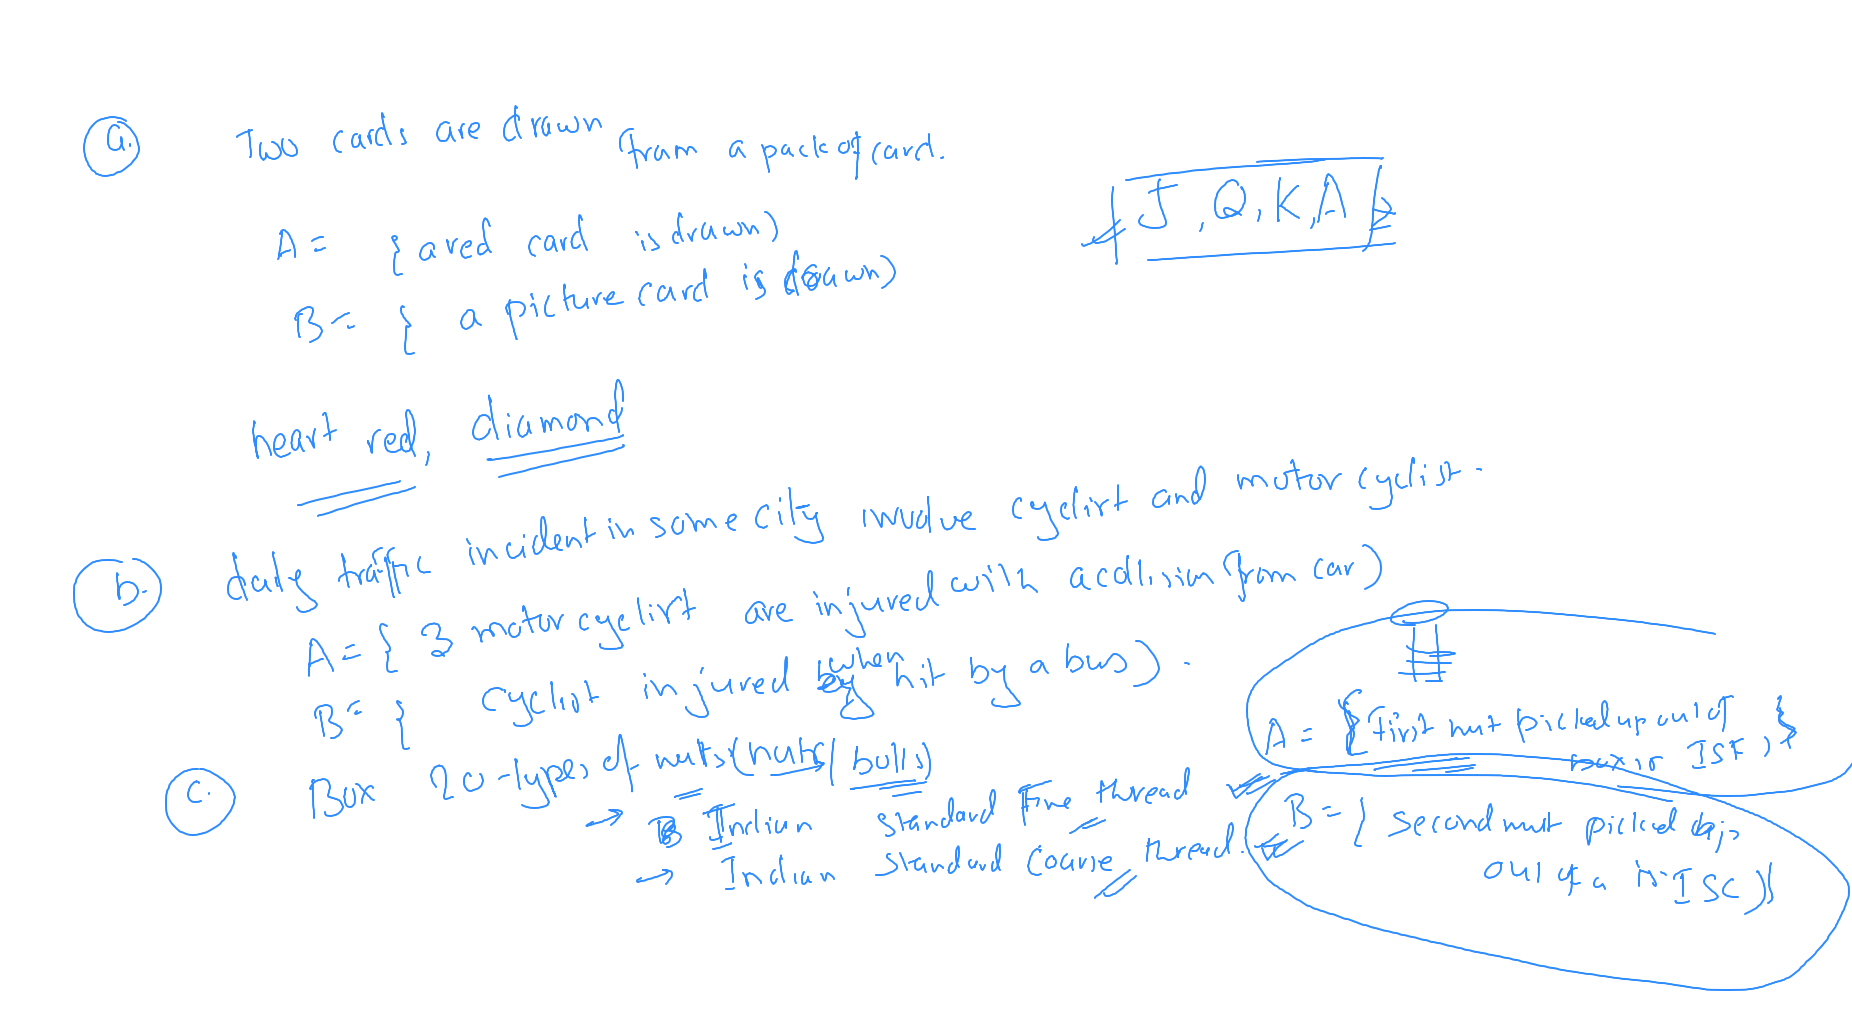 a.
Two cards are drawn from a pack of card.
A = { a red card is drawn)
B = { a picture card is drawn)
{ J, Q, K, A }
heart red, diamond
b.
daily traffic incident in some city involve cyclist and motor cyclist.
A = { 3 motor cyclist are injured with a collision from car)
B = { cyclist injured when hit by a bus).
c.
Box 20-types of nuts (nuts/ bolls)
→ Indian Standard Fine thread
→ Indian Standard Coarse thread.
A = { First nut picked up out of
box is ISF, }
B = { Second nut picked
out of a is ISC )}